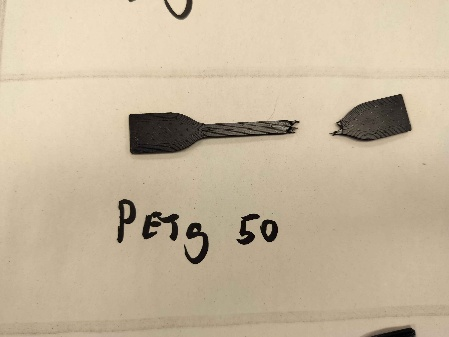 PETg 50